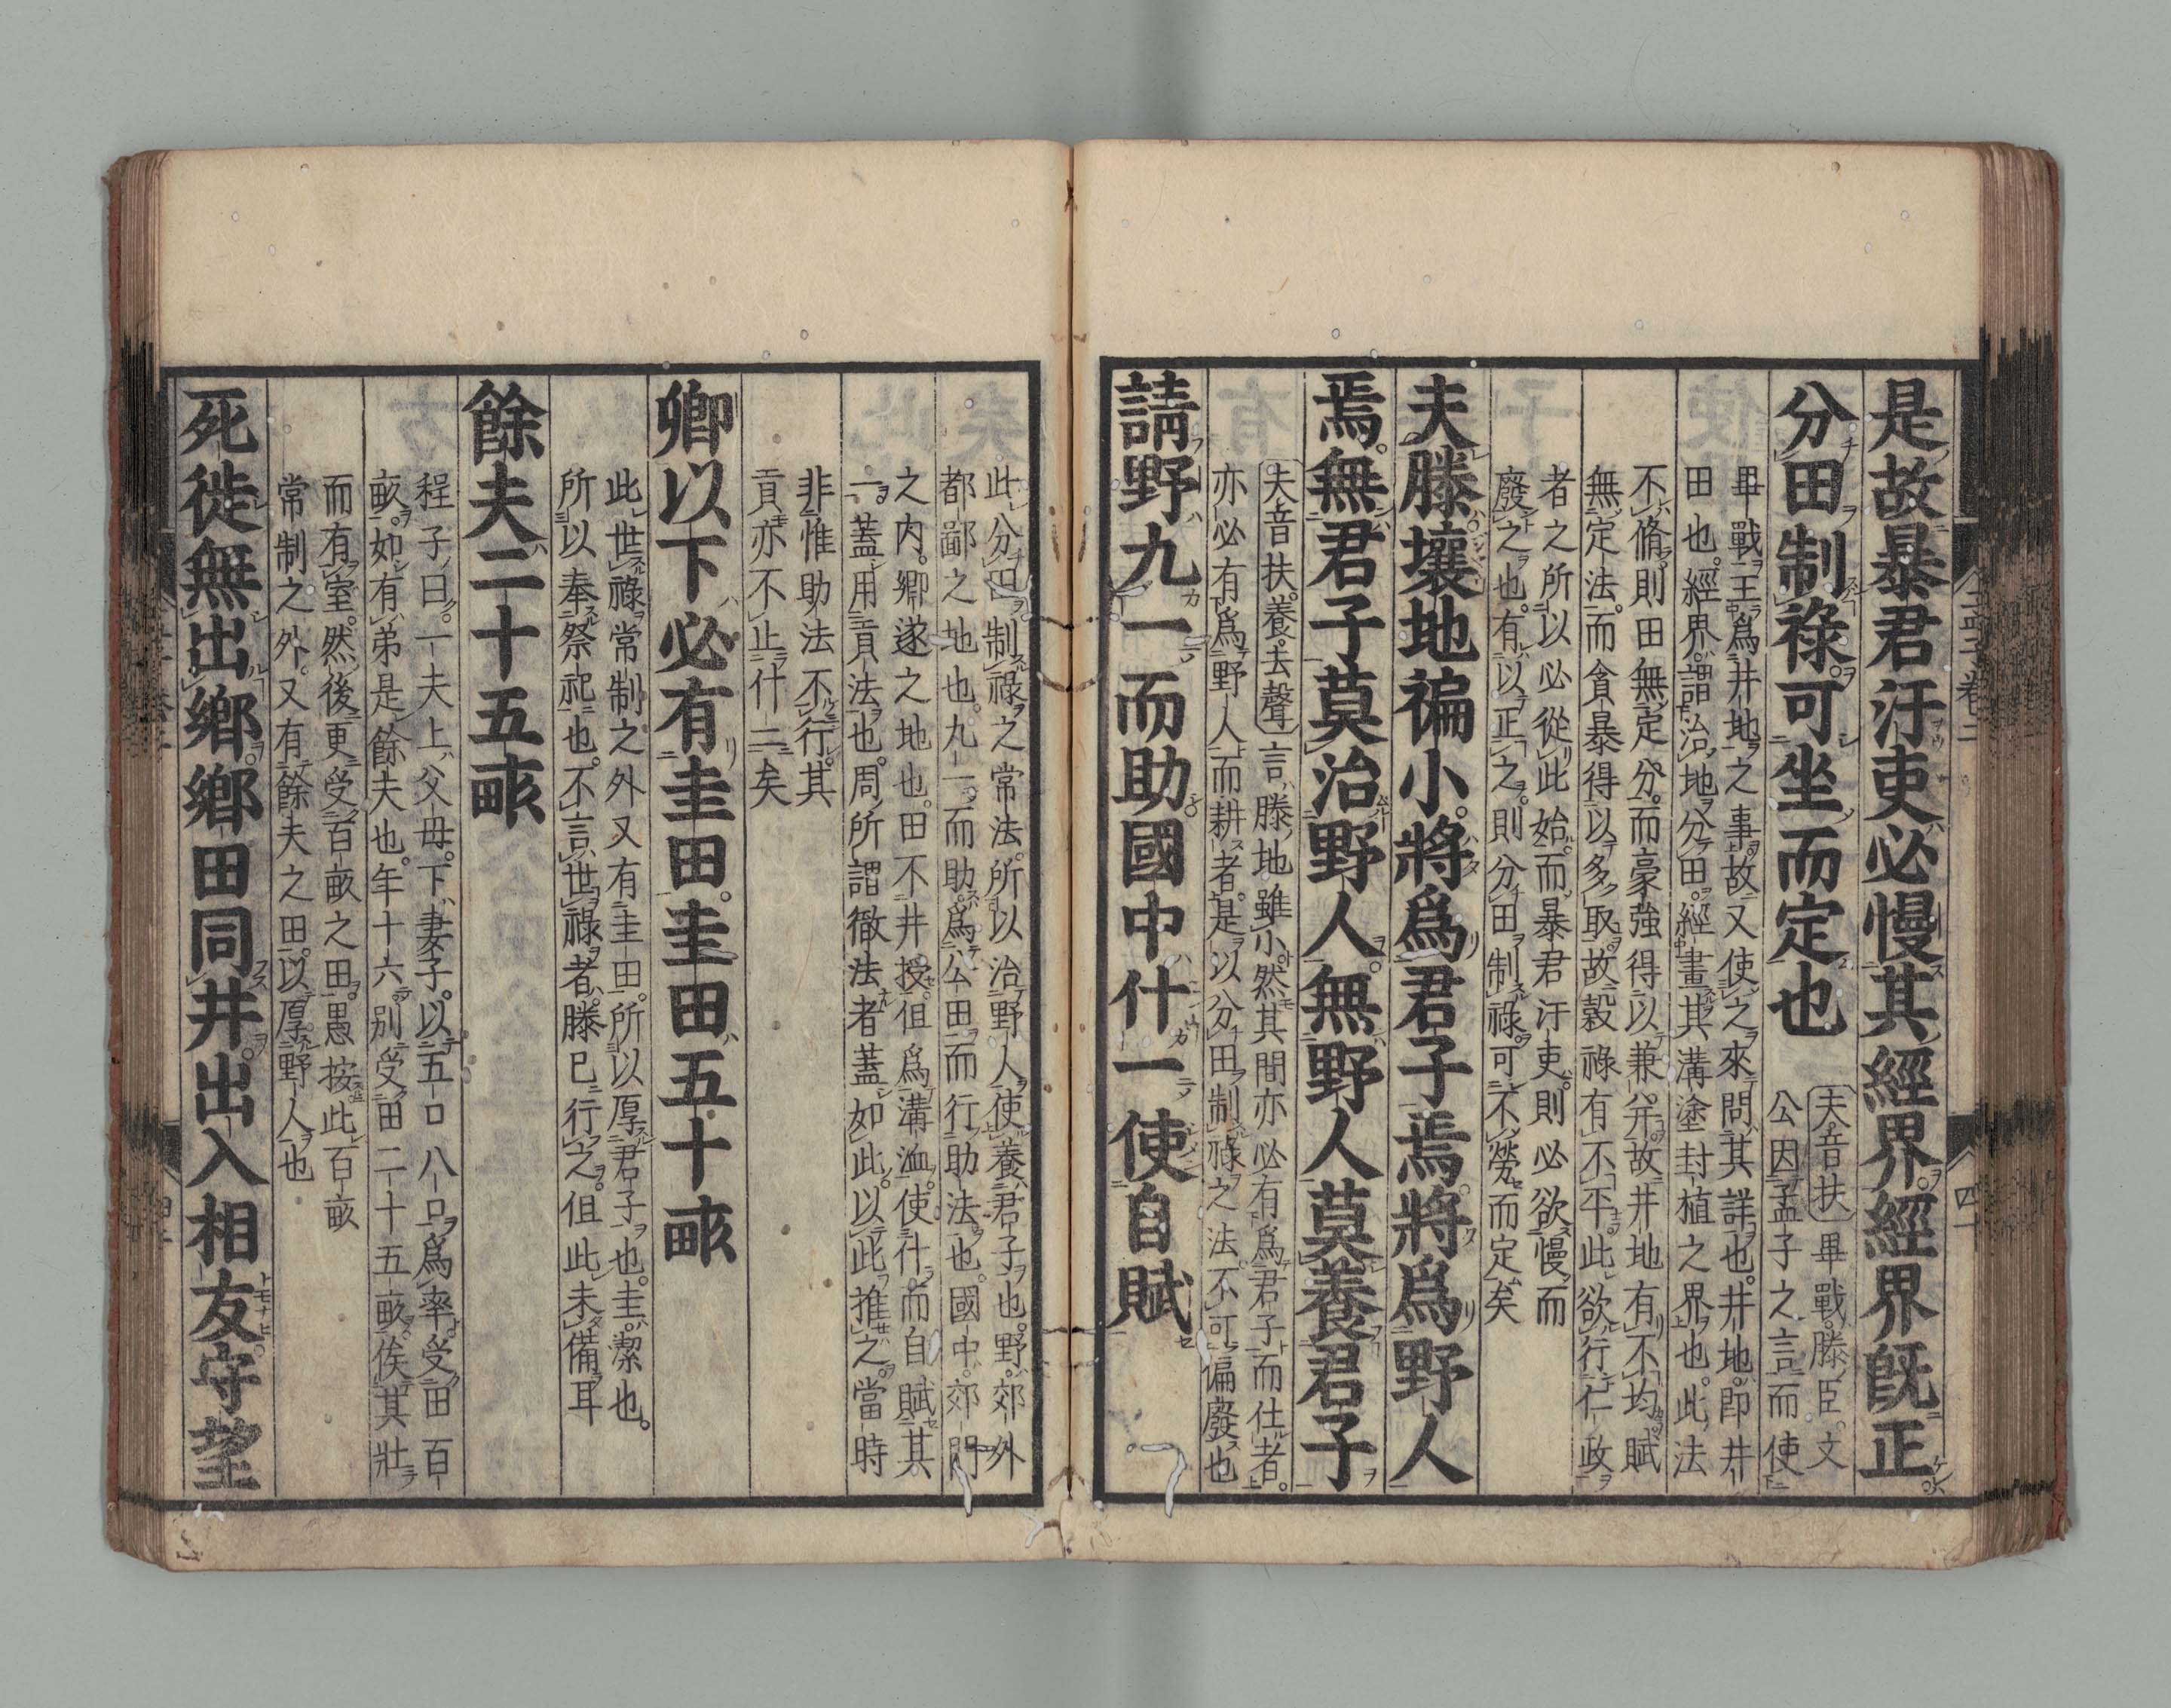 是故暴君汙吏必慢其經界。經界既正。
分田制祿。可坐而定也
夫音扶 畢戰。滕臣。文
公因孟子之言而使
畢戰王爲井地之事。故又使之來問其詳也。井地。即井
田也。經界。謂治地分田。經畫其溝塗封植之界也。此法
不脩。則田無定分。而豪強得以兼并。故井地有不均。賦
無定法。而貪暴得以多取。故穀祿有不平。此欲行仁政
者之所以必從此始。而暴君汙吏。則必欲慢而
廢之也。有以正之。則分田制祿。可不勞而定矣
夫滕壤地褊小。將爲君子焉。將爲野人
焉。無君子莫治野人。無野人莫養君子
夫音扶。養。去聲 言滕地雖小。然其間亦必有爲君子而仕者。
亦必有爲野人而耕者。是以分田制祿之法。不可偏廢也
請野九一而助。國中什一使自賦
此分田制祿之常法。所以治野人。使養君子也。野。郊外
都鄙之地也。九一而助。爲公田而行助法也。國中。郊門
之内。鄕遂之地也。田不井授。但爲溝洫。使什而自賦其
一。蓋用貢法也。周所謂徹法者蓋如此。以此推之。當時
非惟助法不行。其
貢亦不止什二矣
卿以下必有圭田。圭田五十畝
此世祿常制之外又有圭田。所以厚君子也。圭。潔也。
所以奉祭祀也。不言世祿者。滕已行之。但此未備耳
餘夫二十五畝
程子曰。一夫上父母。下妻子。以五口八口爲率。受田百
畝。如有弟是餘夫也。年十六。別受田二十五畝。俟其壯
而有室。然後更受百畝之田。愚按此百畝
常制之外。又有餘夫之田。以厚野人也
死徙無出鄕。鄕田同井。出入相友。守望